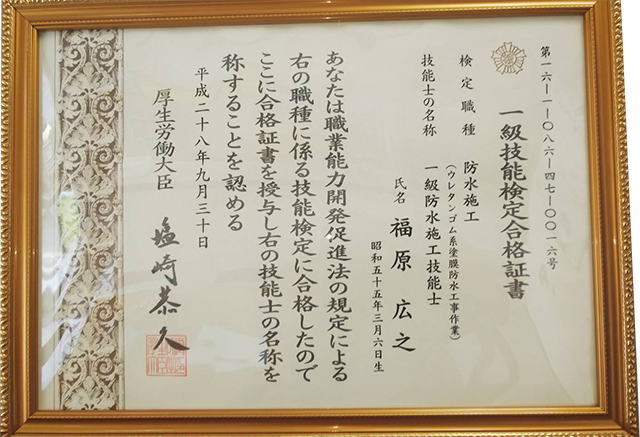 第一六―一―〇八六―四七―〇〇一六号
一級技能検定合格証書
検定職種 防水施工
(ウレタンゴム系塗膜防水工事作業)
技能士の名称 一級防水施工技能士
氏名 福原 広之
昭和五十五年三月六日生
あなたは職業能力開発促進法の規定による
右の職種に係る技能検定に合格したので
ここに合格証書を授与し右の技能士の名称を
称することを認める
平成二十八年九月三十日
厚生労働大臣 塩崎恭久